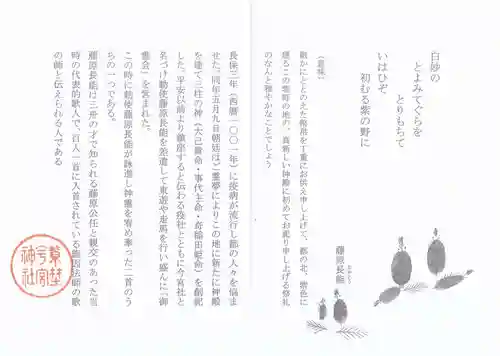 白妙の
とよみてぐらを
とりもちて
いはひぞ
初むる紫の野に
藤原長能
(意味)
確かにととのえた幣帛を丁重にお供え申し上げて、都の北、紫色に
煙るこの紫野の地の、真新しい神殿に初めてお祀り申し上げる祭礼
のなんと雅やかなことでしょう
長保三年(西暦一〇〇一年)に疫病が流行し都の人々を悩ま
せた。同年五月九日朝廷はご霊夢によりこの地に新たに神殿
を建て三柱の神(大己貴命・事代主命・奇稲田姫命)を創祀
した。平安以前より鎮座すると伝わる疫社とともに今宮社と
名づけ勅使藤原長能を差遣して東遊や走馬を行い盛んに「御
霊会」を営まれた。
この時に勅使藤原長能が詠進し神霊を宥め奉った二首のう
ちの一つである。
藤原長能は三舟の才で知られる藤原公任と親交のあった当
時の代表的歌人で、百人一首に入首されている能因法師の歌
の師と伝えられる人である
紫野
今宮
神社